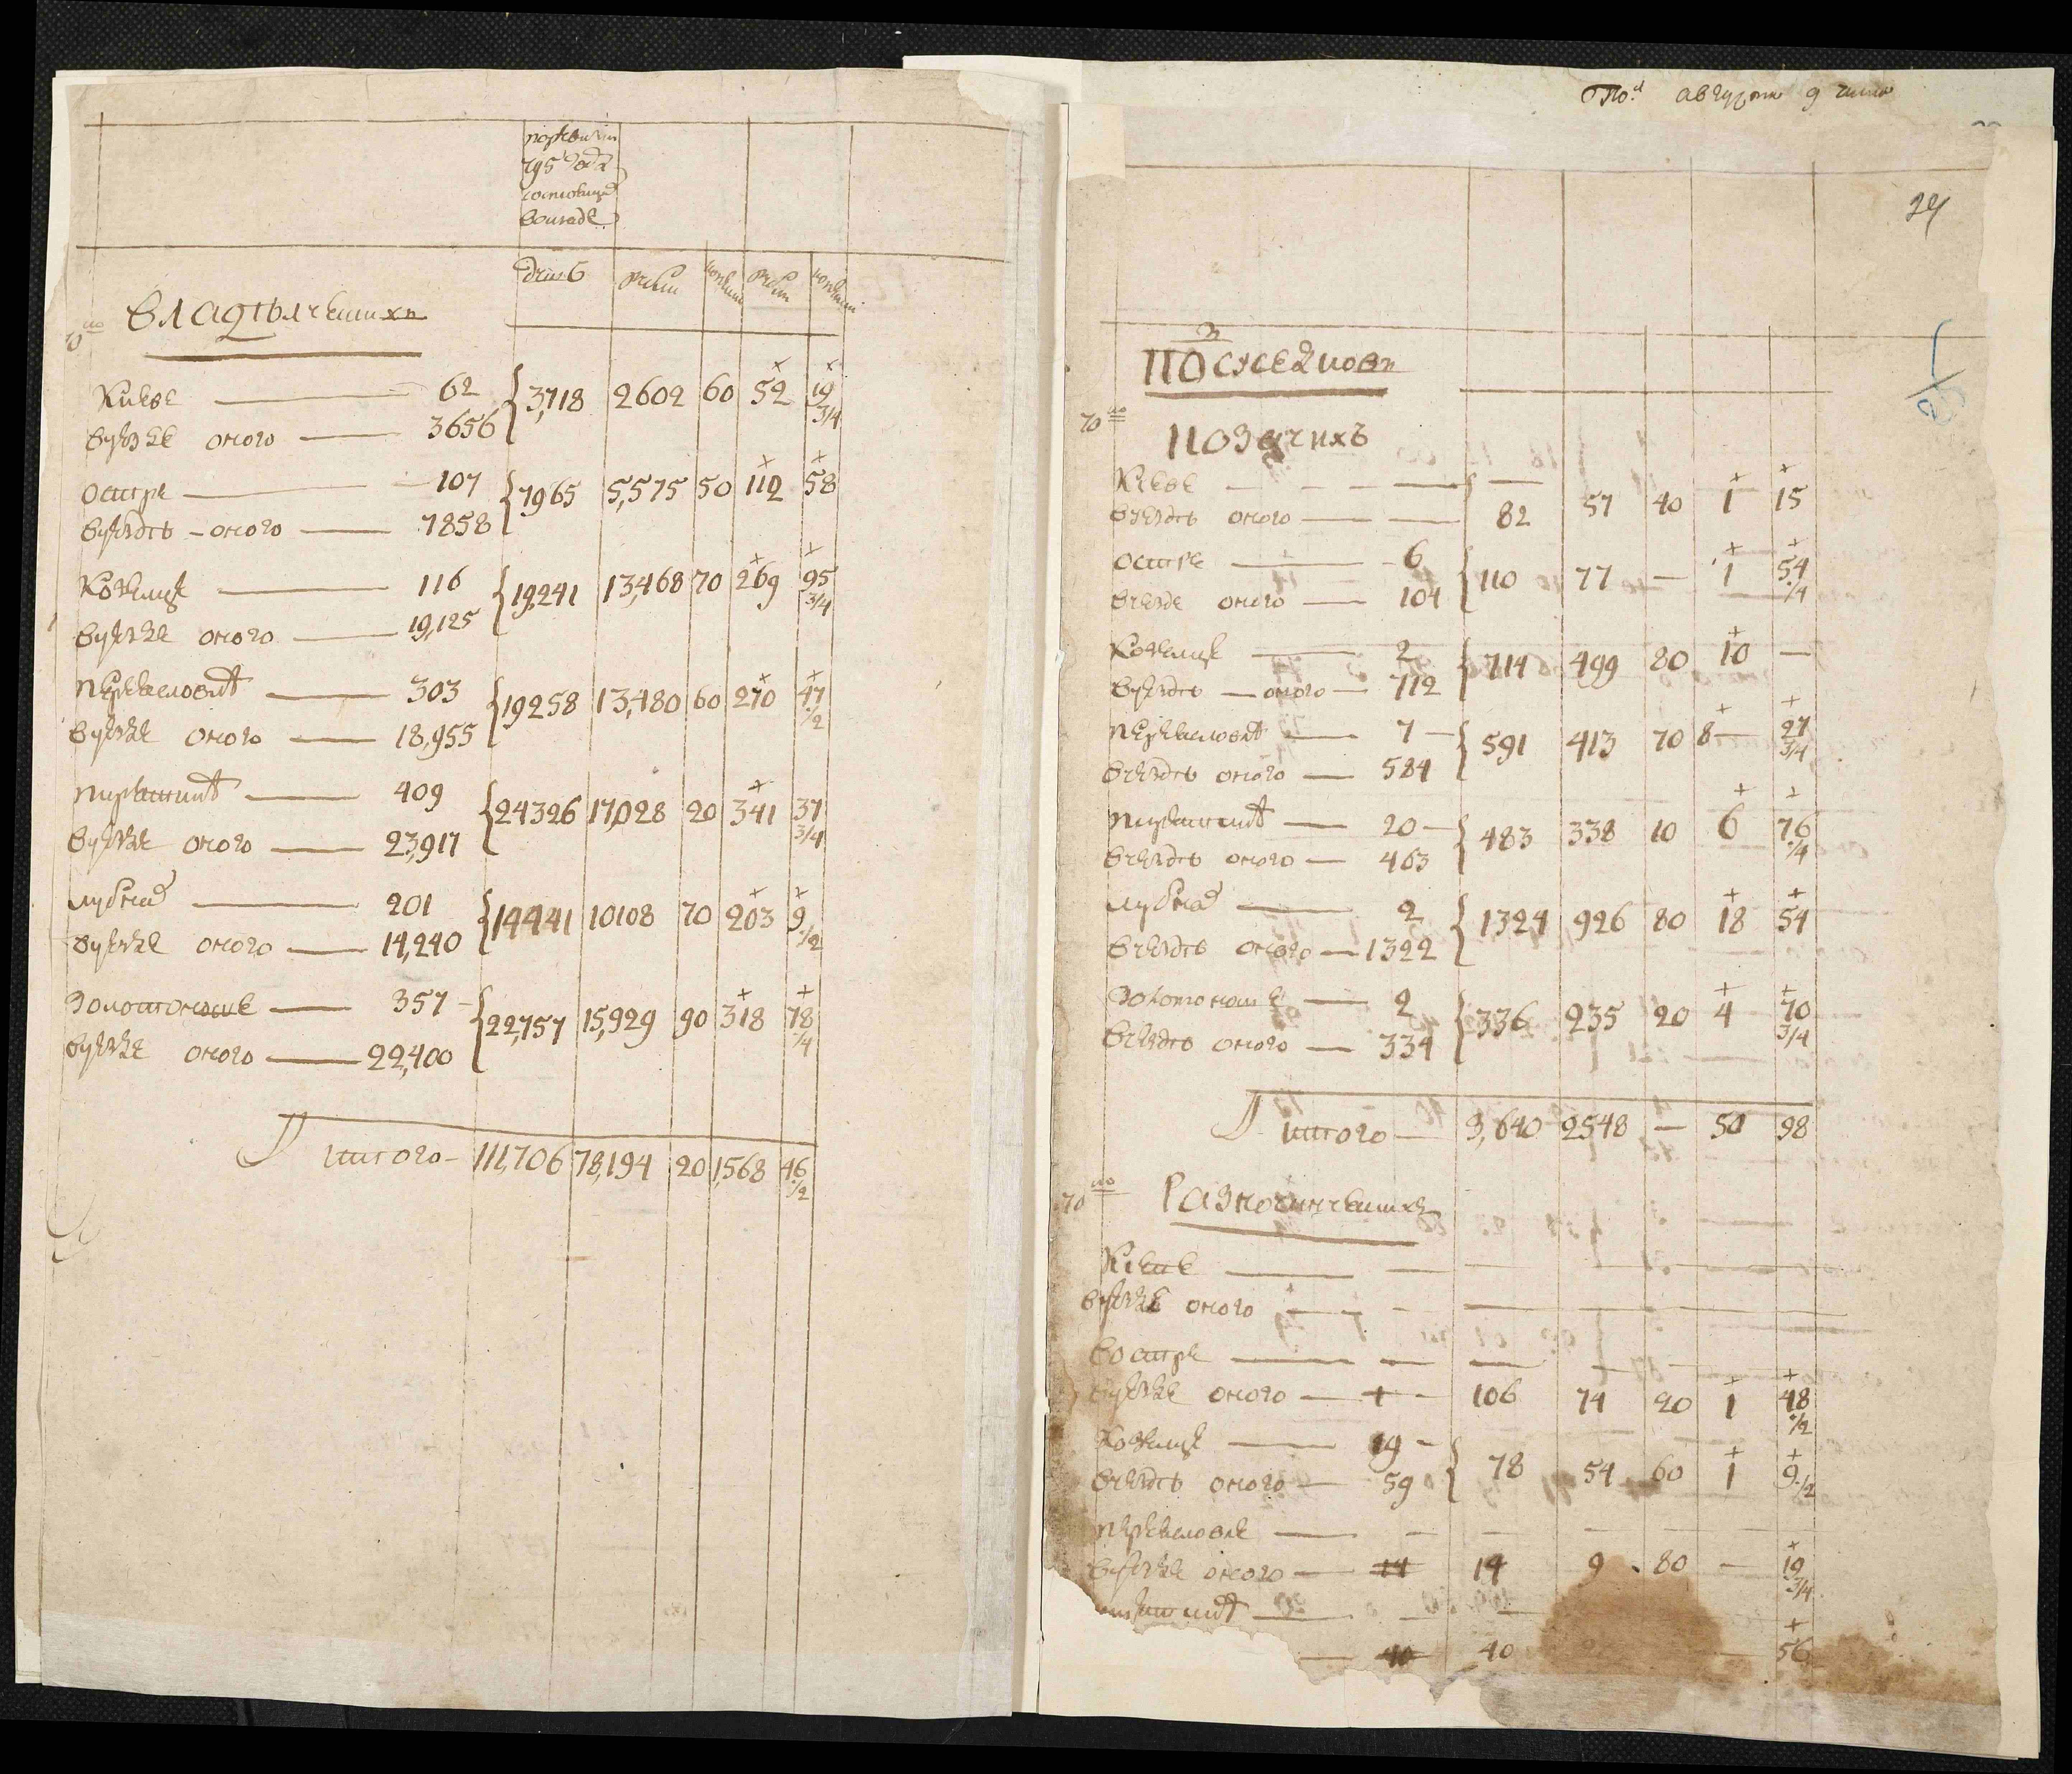 По ревизіи
795 года
состоящие
в окладе
душъ рубли копѣйки рубли копѣйки
70 ко владѣлческихъ
Киеве — 62 { 3,718 2602 60 52 19 3/4
в уезде оного — 3656
Остре — 107 { 7965 5,575 50 112 58
в уездѣ оного — 7858
Козельце — 116 { 19241 13,468 70 269 95 3/4
в уезде оного — 19,125
Переяславле — 303 { 19258 13,480 60 270 47 1/2
в уезде оного — 18,955
Пирятине — 409 { 24326 17,028 20 341 37 3/4
в уезде оного — 23,917
Лубнах — 201 { 14441 10108 70 203 9 1/2
в уезде оного — 14,240
Золотоноше — 357 { 22,757 15,929 90 318 78 1/4
в уезде оного — 22,400
Итого — 111,706 78,194 20 1,568 46 1/2
августа 9 числа
24
25
70 ко
Киеве — — { —
в уездѣ оного — — 82 57 40 1 15
Остре — 6 { 110 77 — 1 54 1/4
в уезде оного — 104
Козельце — 2 { 714 499 80 10 —
в уездѣ — оного — 712
Переяславле — 7 { 591 413 70 8 27 3/4
в уездѣ оного — 584
Пирятине — 20 { 483 338 10 6 76 1/4
в уездѣ оного — 463
Лубнах — 2 { 1324 926 80 18 54
в уездѣ оного — 1322
Золотоноше — 2 { 336 235 20 4 70 3/4
в уездѣ оного — 334
Итого — 3,640 2548 — 50 98
70 ко Разночинческихъ
Киеве — — — — —
в уезде оного — — — — —
в Остре — — — — —
в уезде оного — 106 74 20 1 48 1/2
Козельце — 19 { 78 54 60 1 9 1/2
в уездѣ оного — 59
Переяславле — — — — —
в уезде оного — 14 14 9 80 — 19 3/4
Пирятине — — —
— 40 40 — 56